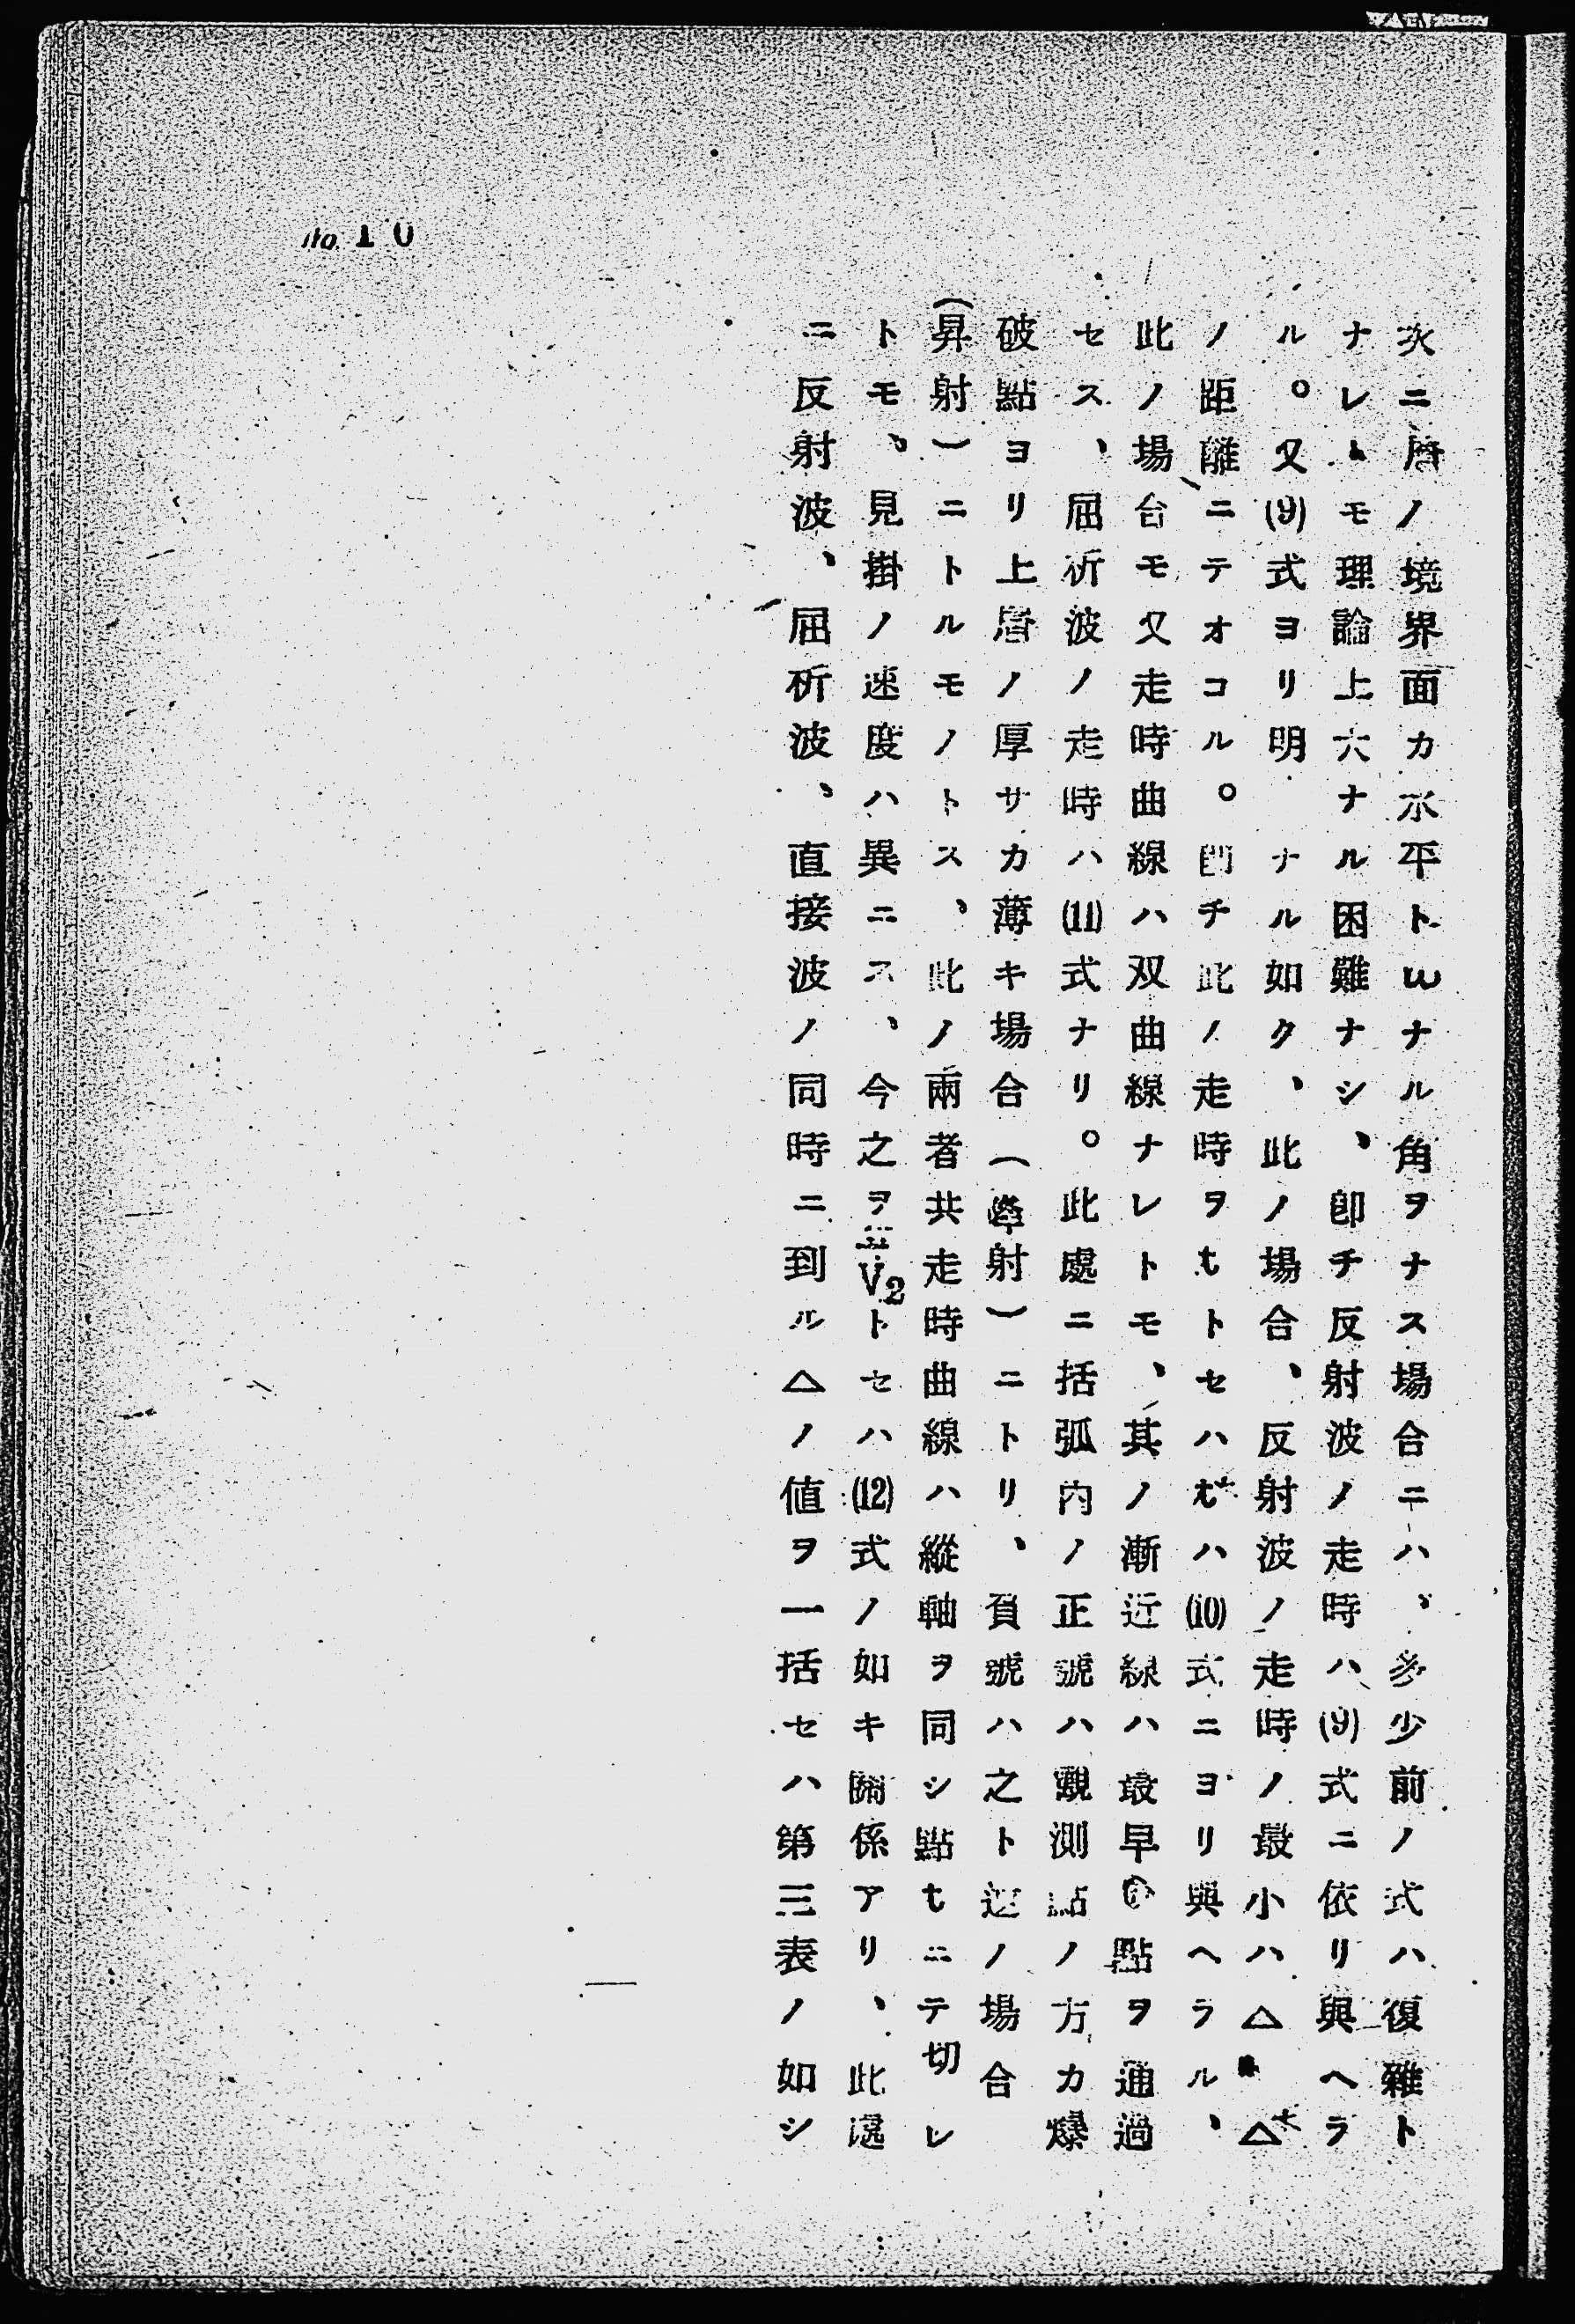 No. 10
次ニ層ノ境界面カ水平トωナル角ヲナス場合ニハ、多少前ノ式ハ復雜ト
ナレトモ理論上大ナル困難ナシ、卽チ反射波ノ走時ハ(9)式ニ依リ與ヘラ
ル。又(9)式ヨリ明ナル如ク、此ノ場合、反射波ノ走時ノ最小ハ△ △*
ノ距離ニテオコル。卽チ此ノ走時ヲtトセハt*ハ(10)式ニヨリ與ヘラル、
此ノ場合モ又走時曲線ハ双曲線ナレトモ、其ノ漸近線ハ最早 點ヲ通過
セス、屈折波ノ走時ハ(11)式ナリ。此處ニ括弧内ノ正號ハ觀測點ノ方カ爆
破點ヨリ上層ノ厚サカ薄キ場合(降射)ニトリ、負號ハ之ト逆ノ場合
(昇射)ニトルモノトス、此ノ兩者共走時曲線ハ縱軸ヲ同シ點tニテ切レ
トモ、見掛ノ速度ハ異ニス、今之ヲV2トセハ(12)式ノ如キ關係アリ、此處
ニ反射波、屈折波、直接波ノ同時ニ到ル△ノ値ヲ一括セハ第三表ノ如シ